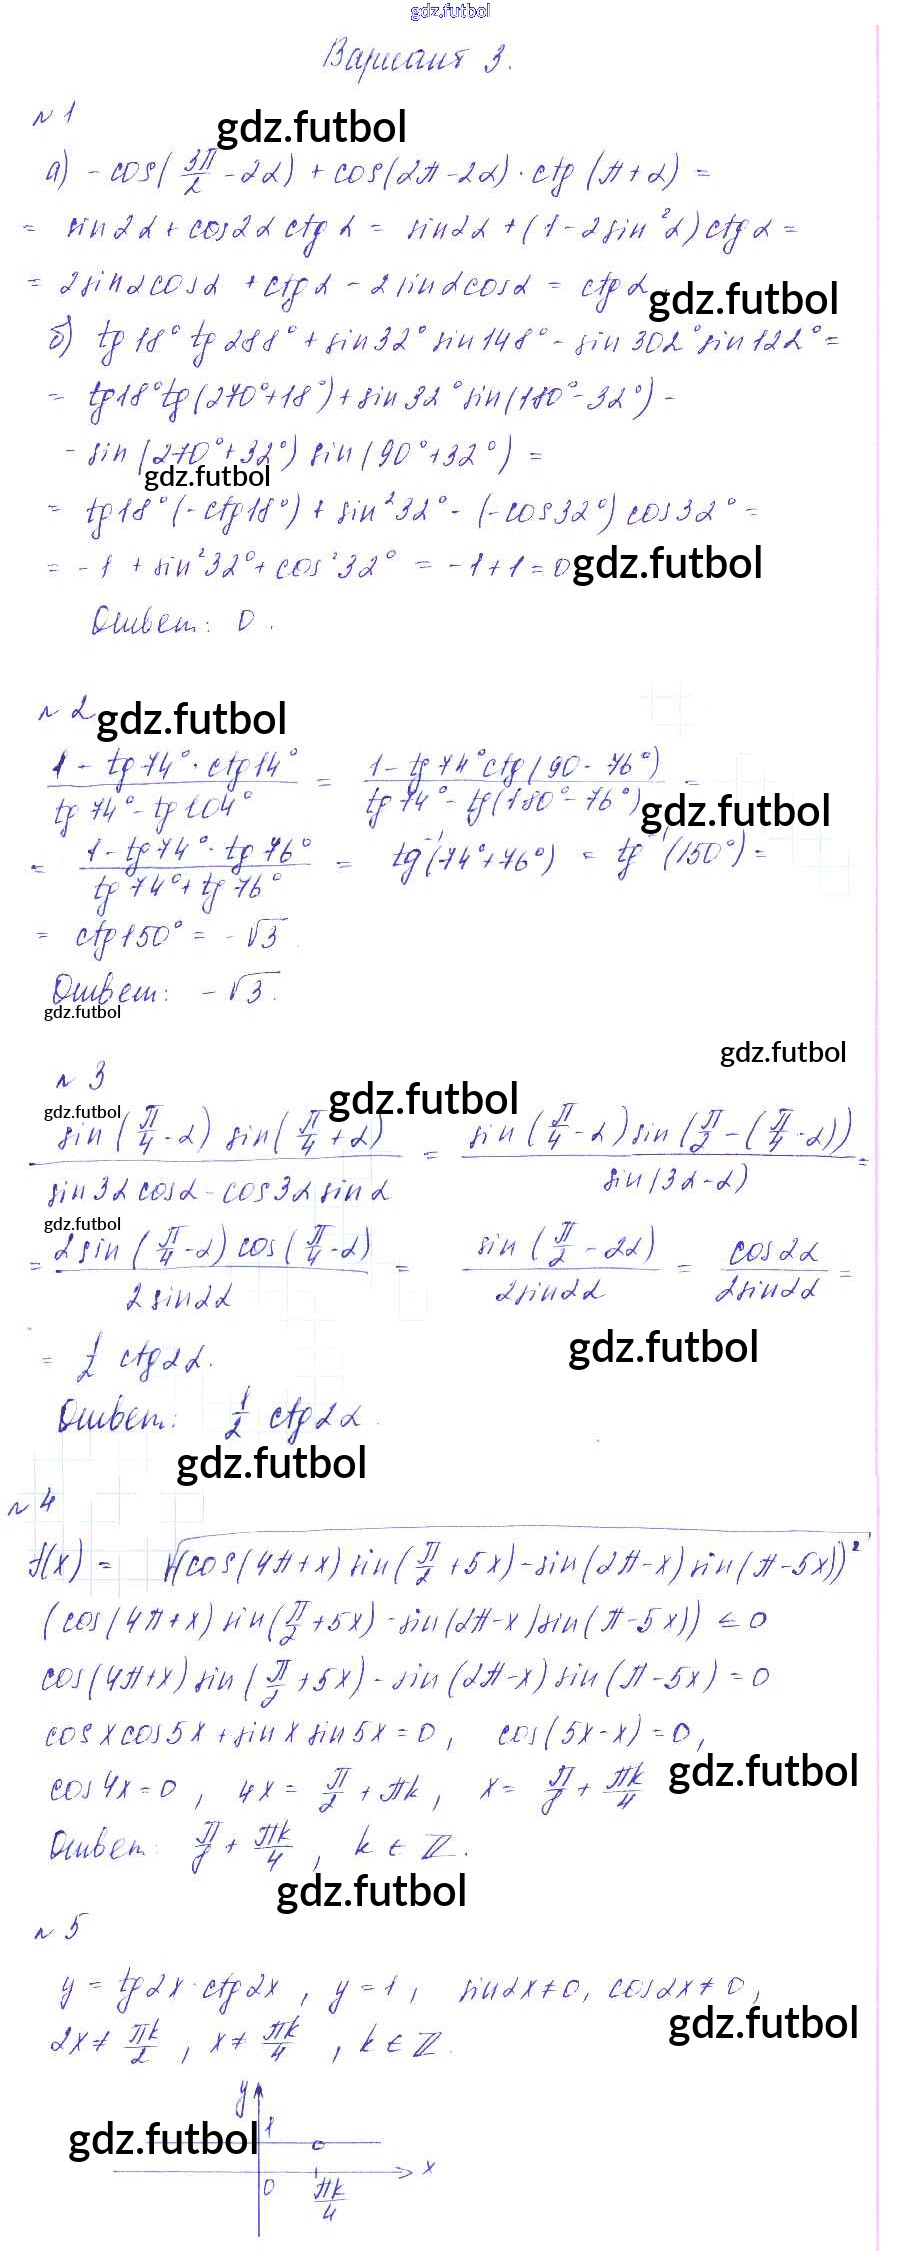 gdz.futbol
Вариант 3.
№ 1
gdz.futbol
а) - cos(3π/2 - 2α) + cos(2π - 2α) · ctg(π + α) =
= sin2α + cos2α ctg α = sin2α + (1 - 2sin²α) ctg α =
= 2sinα cosα + ctg α - 2 sinα cosα = ctg α.
gdz.futbol
б) tg 18° tg 288° + sin 32° sin 148° - sin 302° sin 122° =
= tg18° tg(270° + 18°) + sin 32° sin(180° - 32°) -
- sin(270° + 32°) sin(90° + 32°) =
gdz.futbol
= tg18° (- ctg18°) + sin²32° - (- cos32°) cos32° =
= - 1 + sin²32° + cos²32° = - 1 + 1 = 0
gdz.futbol
Ответ: 0.
№ 2
gdz.futbol
(1 - tg74° · ctg14°)/(tg 74° - tg 104°) = (1 - tg74° ctg(90 - 76°))/(tg 74° - tg(180° - 76°)) =
gdz.futbol
= (1 - tg74° · tg76°)/(tg 74° + tg 76°) = tg⁻¹(74° + 76°) = tg⁻¹(150°) =
= ctg150° = - √3.
Ответ: - √3.
gdz.futbol
gdz.futbol
№ 3
gdz.futbol
gdz.futbol
(sin(π/4 - α) sin(π/4 + α))/(sin3α cosα - cos3α sinα) = (sin(π/4 - α) sin(π/2 - (π/4 - α)))/(sin(3α - α)) =
gdz.futbol
= (2sin(π/4 - α) cos(π/4 - α))/(2 sin2α) = (sin(π/2 - 2α))/(2sin2α) = (cos2α)/(2sin2α) =
gdz.futbol
= 1/2 ctg2α.
Ответ: 1/2 ctg2α.
gdz.futbol
№ 4
f(x) = √((cos(4π + x) sin(π/2 + 5x) - sin(2π - x) sin(π - 5x))²
(cos(4π + x) sin(π/2 + 5x) - sin(2π - x) sin(π - 5x)) ≤ 0
cos(4π + x) sin(π/2 + 5x) - sin(2π - x) sin(π - 5x) = 0
cos x cos 5x + sin x sin 5x = 0, cos(5x - x) = 0,
gdz.futbol
cos4x = 0, 4x = π/2 + πk, x = π/8 + πk/4
Ответ: π/8 + πk/4, k ∈ Z.
gdz.futbol
№ 5
y = tg2x · ctg2x, y = 1, sin2x ≠ 0, cos2x ≠ 0,
gdz.futbol
2x ≠ πk/2, x ≠ πk/4, k ∈ Z.
y
1
gdz.futbol
x
0
πk/4